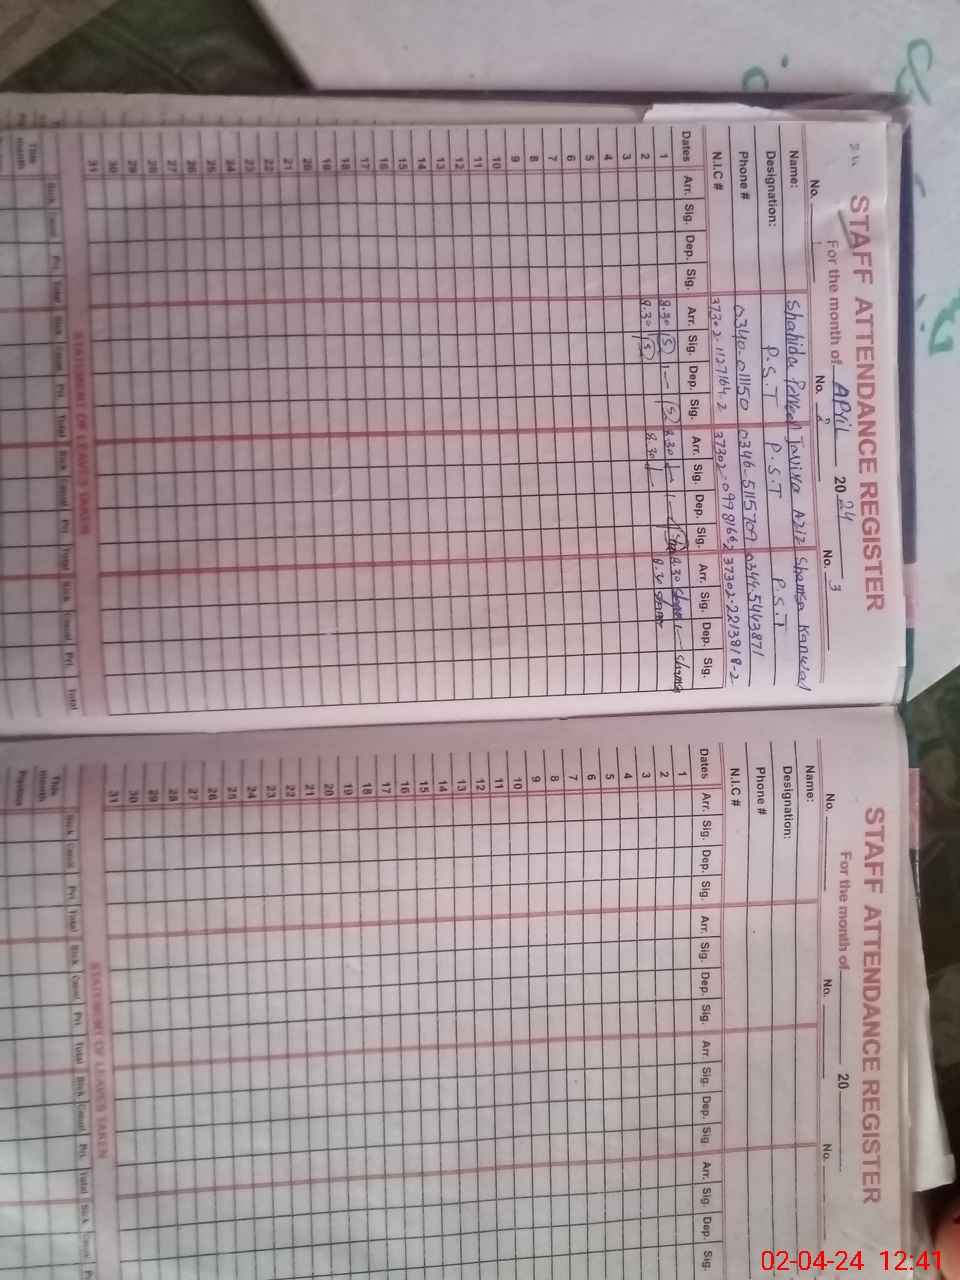 STAFF ATTENDANCE REGISTER
For the month of APRIL 2024
No. No. 2 No. 3
Name: Shahida Javiria Aziz Shamsa Kanwal
Designation: P.S.T P.S.T P.S.T
Phone # 0340-011150 0346-5115709 0344.5443871
N.I.C # 37302-1127164-2 37302-0998166-2 37302-2213818-2
Dates Arr. Sig. Dep. Sig. Arr. Sig. Dep. Sig. Arr. Sig. Dep. Sig. Arr. Sig. Dep. Sig.
1 8.30 8.30 8.30 Shamsa
2 8.30 8.30 8.30
3
4
5
6
7
8
9
10
11
12
13
14
15
16
17
18
19
20
21
22
23
24
25
26
27
28
29
30
31
STATEMENT OF LEAVES TAKEN
Sick Casual Pri. Total Sick Casual Pri. Total Sick Casual Pri. Total Sick Casual Pri. Total
This month
STAFF ATTENDANCE REGISTER
For the month of 20
No. No. No.
Name:
Designation:
Phone #
N.I.C #
Dates Arr. Sig. Dep. Sig. Arr. Sig. Dep. Sig. Arr. Sig. Dep. Sig. Arr. Sig. Dep. Sig.
1
2
3
4
5
6
7
8
9
10
11
12
13
14
15
16
17
18
19
20
21
22
23
24
25
26
27
28
29
30
31
STATEMENT OF LEAVES TAKEN
Sick Casual Pri. Total Sick Casual Pri. Total Sick Casual Pri. Total Sick Casual
This month
Previous
02-04-24 12:41